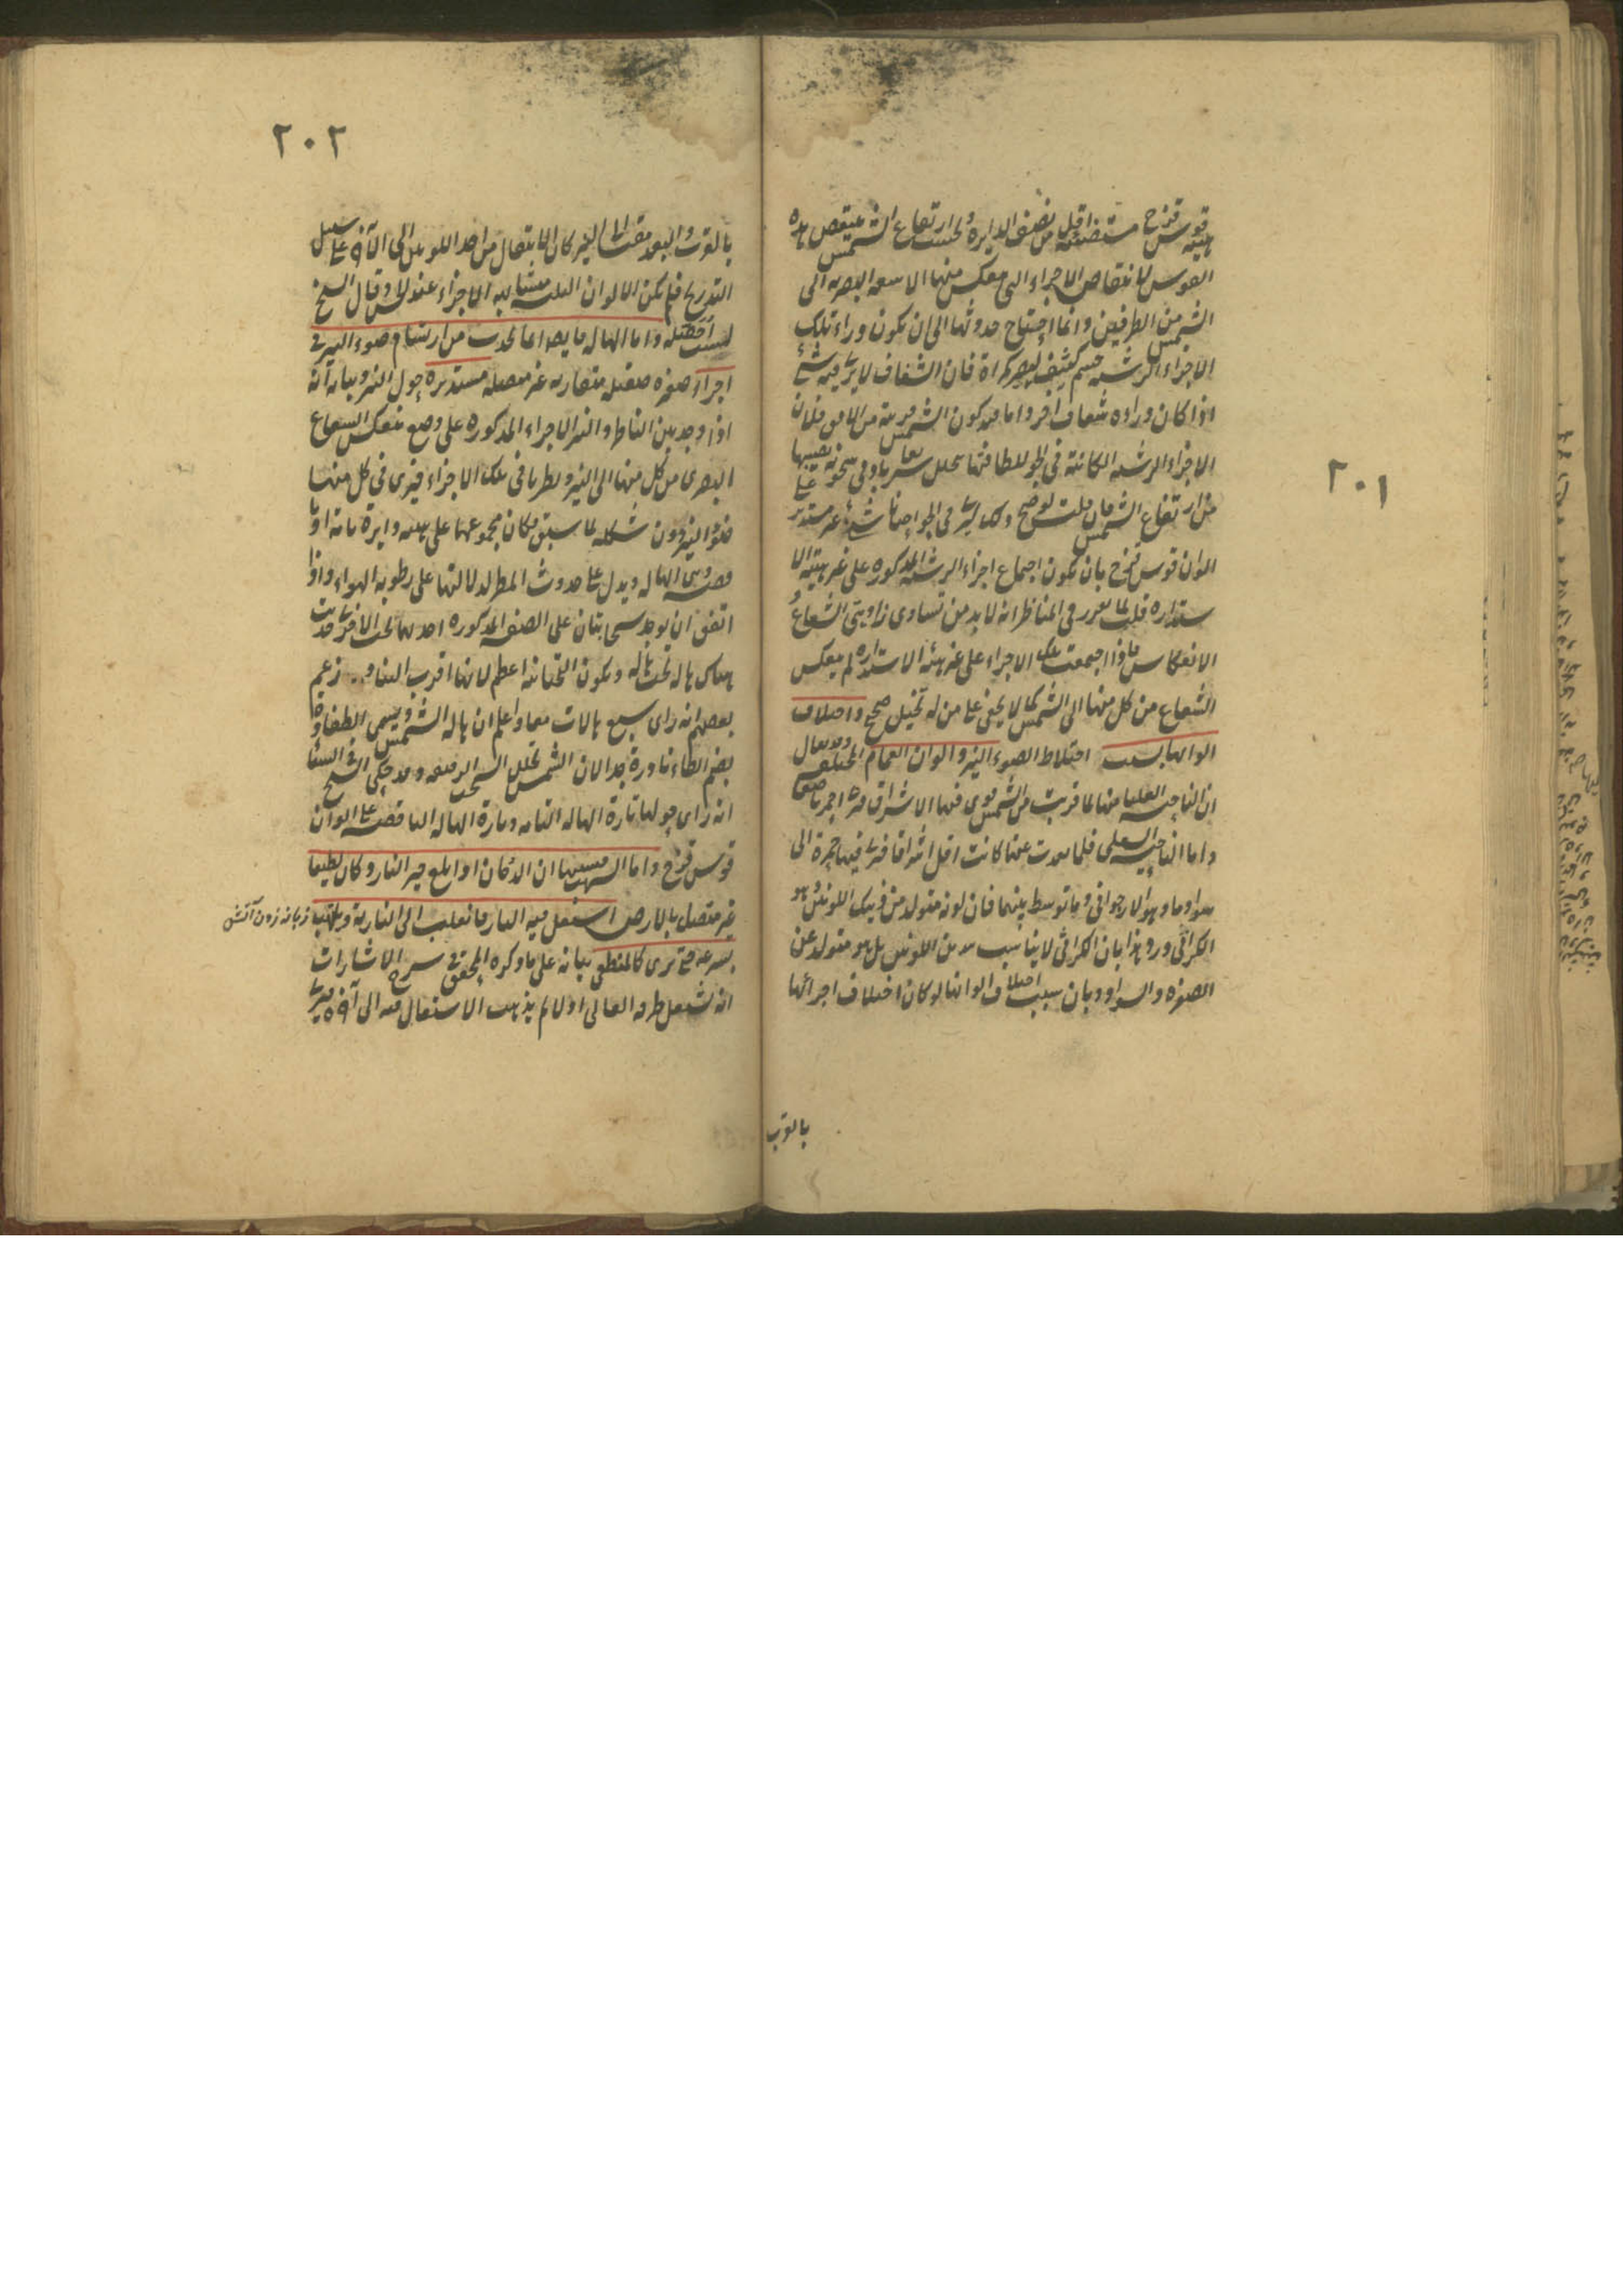 ٢٠١
هيئة قوس قزح مستضيئة اقل من نصف الدايرة وبحسب ارتفاع الشمس ينتقص هذه
القوس لانتقاص الاجزاء التى ينعكس منها الاشعة البصرية الى
الشمس من الطرفين وانما احتاج حدوثها الى ان يكون وراء تلك
الاجزاء الرشية جسم كثيف ليصير كمرآة فان الشفاف لا يرى فيه شئ
اذا كان وراءه شفاف آخر واما قيد كون الشمس قريبة من الافق فلان
الاجزاء الرشية الكائنة فى الجو للطافتها يتحلل سريعا بادنى سخونة يصيبها
من ارتفاع الشمس فان قلت لو صح ذلك لرئى فى الجو احيانا شئ غير مستدير على
الوان قوس قزح بان يكون اجتماع اجزاء الرشية المذكورة على غير هيئة الا
ستدارة قلت لما تقرر فى المناظر انه لابد من تساوى زاويتى الشعاع و
الانعكاس فاذا اجتمعت تلك الاجزاء على غير هيئة الاستدارة لم ينعكس
الشعاع من كل منها الى الشمس كما لا يخفى على من له تخيل صحيح واختلاف
الوانها بسبب اختلاط الضوء النير والوان الغمام المختلفة وقد يقال
ان الناحية العليا منها لما قربت من الشمس قوى فيها الاشراق فيرى احمر ناصعا
واما الناحية السفلى فلما بعدت عنها كانت اقل اشراقا فيرى فيها حمرة الى
سواد ما وهو الارجوانى وما توسط بينهما فان لونه متولد من ذينك اللونين وهو
الكراثى ورد هذا بان الكراثى لا يناسب هذين اللونين بل هو متولد عن
الصفرة والسواد وبان سبب اختلاف الوانها لو كان اختلاف اجزائها
بالقرب
٢٠٢
بالقرب والبعد مقيسا الى النير كان الانتقال من احد اللونين الى الآخر على سبيل
التدريج فلم يكن الالوان الثلثة متشابهة الاجزاء عند الحس وقال الشيخ
لست احصله واما الهالة فايضا انما تحدث من ارتسام ضوء النير فى
اجزاء صغيرة صقيلة متقاربة غير متصلة مستديرة حول النير وبيانه انه
اذا وجد بين الناظر والنير الاجزاء المذكورة على وضع ينعكس الشعاع
البصرى من كل منها الى النير ونظر ما فى تلك الاجزاء فيرى فى كل منها
ضوء النير دون شكله لما سبق فكان مجموعها على هيئة دايرة تامة او نا
قصة وهى الهالة ويدل على حدوث المطر لدلالتها على رطوبة الهواء واذا
اتفق ان يوجد سحابتان على الصفة المذكورة احديهما تحت الاخرى حدثت
هناك هالة تحت هالة ويكون التحتانية اعظم لانها اقرب الينا و زعم
بعضهم انه راى سبع هالات معا واعلم ان هالة الشمس ويسمى الطفاوة
بضم الطاء نادرة جدا لان الشمس تحلل السحب الرقيقة وقد حكى الشيخ فى الشفاء
انه راى حولها تارة الهالة التامة وتارة الهالة الناقصة على الوان
قوس قزح واما الشهب فسببها ان الدخان اذا بلغ حيز النار وكان لطيفا
غير متصل بالارض اشتعل فيه النار فانقلب الى النارية ويلتهب
زبانه زدن آتش
بسرعة حتى يرى كالمنطفى بيانه على ما ذكره المحقق فى شرح الاشارات
انه يشتعل طرفه العالى اولا ثم يذهب الاشتعال فيه الى آخره فيرى